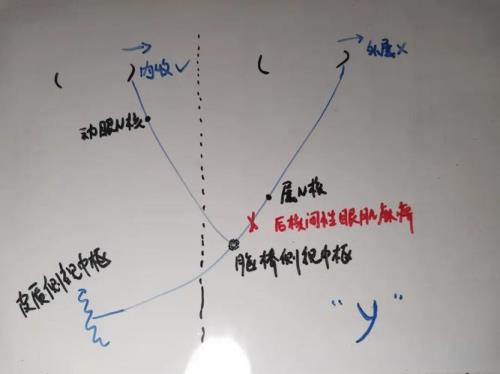 内收✓
外展×
动眼N核
展N核
× 后核间性眼肌麻痹
脑桥侧视中枢
皮质侧视中枢
"y"